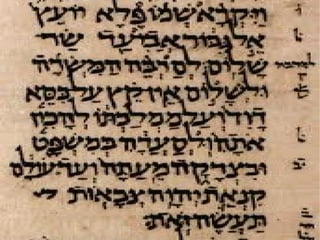 ויקרא שמו פלא יועץ
אל גבור אבי עד שר
שלום לםרבה המשרה
ולשלום אין קץ על כסא
דוד ועל ממלכתו להכין
אתה ולסעדה במשפט
ובצדקה מעתה ועד עולם
קנאת יהוה צבאות
תעשה זאת